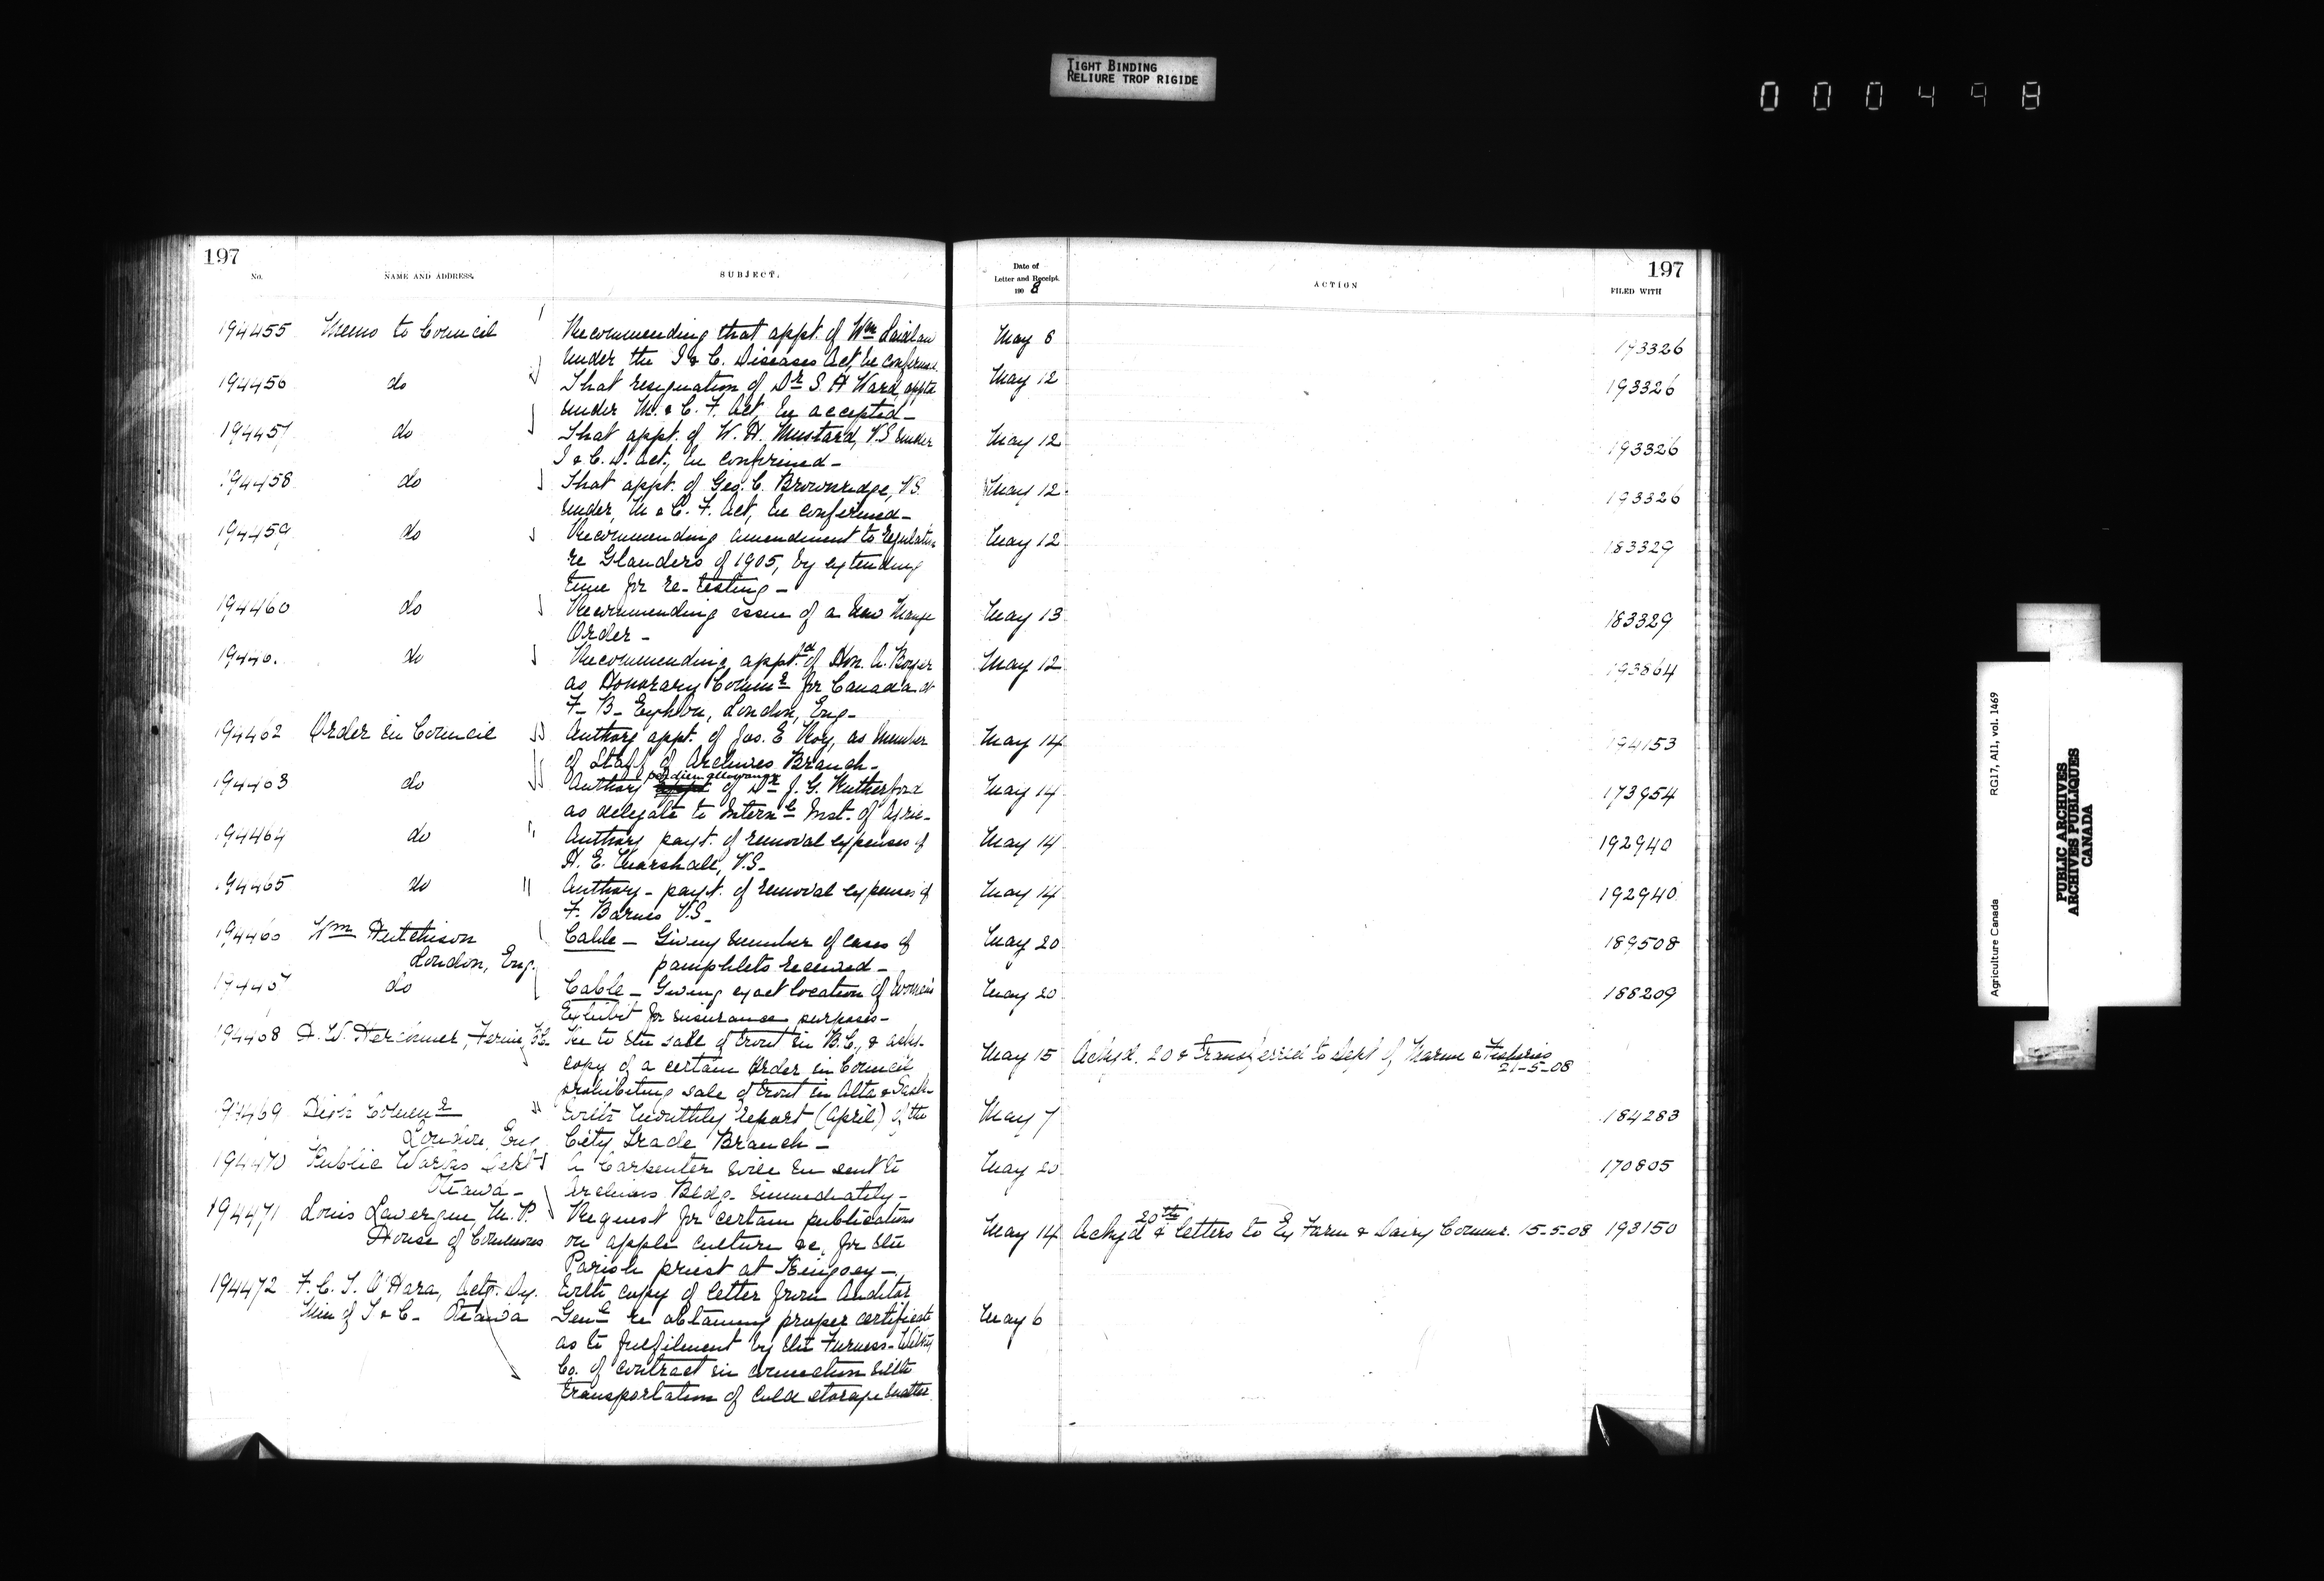 TIGHT BINDING
RELIURE TROP RIGIDE
000498
197
No.
NAME AND ADDRESS.
SUBJECT.
Date of
Letter and Receipt.
190 8
ACTION
197
FILED WITH
194455 Memo to Council Recommending that appt. of Wm Laidlaw May 6 193326
under the I & C. Diseases Act, be confirmed
194456 do That resignation of Dr S. H Ward, apptd May 12 193326
under M. & C. F. Act, be accepted -
194457 do That appt. of W. H. Mustard, V.S under May 12 193326
I & C. D. Act, be confirmed -
194458 do That appt. of Geo. C. Brownridge, V.S. May 12 193326
under M & C. F. Act, be confirmed -
194459 do Recommending amendment to regulation May 12 183329
re Glanders of 1905, by extending
time for re-testing -
194460 do Recommending issue of a new Mange May 13 183329
Order -
19446 do Recommending appt. of Hon. A. Boyer May 12 193864
as Honorary Commr for Canada at
F- B- Exhbn, London, Eng-
194462 Order in Council Authory appt. of Jos. E Roy, as member May 14 194153
of Staff of Archives Branch -
194463 do Authory per diem allowance of Dr J. G. Rutherford May 14 173954
as delegate to Internl Inst. of Agric-
194464 do Authory payt. of removal expenses of May 14 192940
H. E. Marshall, V.S-
194465 do Authory - payt. of removal expenses of May 14 192940
F. Barnes V.S-
194466 Wm Hutchison Cable - Giving number of cases of May 20 189508
London, Eng. pamphlets received -
194467 do Cable - Giving exact location of Women's May 20 188209
Exhibit for insurance purposes -
194468 A. W. Herchmer, Fernie, B.C. Re to the sale of trout in B.C., & asks May 15 Ackgd. 20 & transferred to Dept of Marine & Fisheries
21-5-08
copy of a certain Order in Council
prohibiting sale of trout in Alta & Sask-
194469 High Commr With monthly report (April) of the May 7 184283
London, Eng City Trade Branch -
194470 Public Works Dept A Carpenter will be sent to May 20 170805
Ottawa - Archives Bldg- immediately -
194471 Louis Lavergne, M.P. Request for certain publications May 14 Ackgd 20th & letters to Ex Farm & Dairy Commr. 15-5-08 193150
House of Commons on apple culture &c, for the
Parish priest at Kingsey -
194472 F. C. T. O'Hara, Actg. Dy. With copy of letter from Auditor
Min of T & C- Ottawa Genl re obtaining proper certificate May 6
as to fulfilment by the Furness-Withy
Co. of contract in connection with
transportation of cold storage matter.
Agriculture Canada
RG17, AII, vol. 1469
PUBLIC ARCHIVES
ARCHIVES PUBLIQUES
CANADA